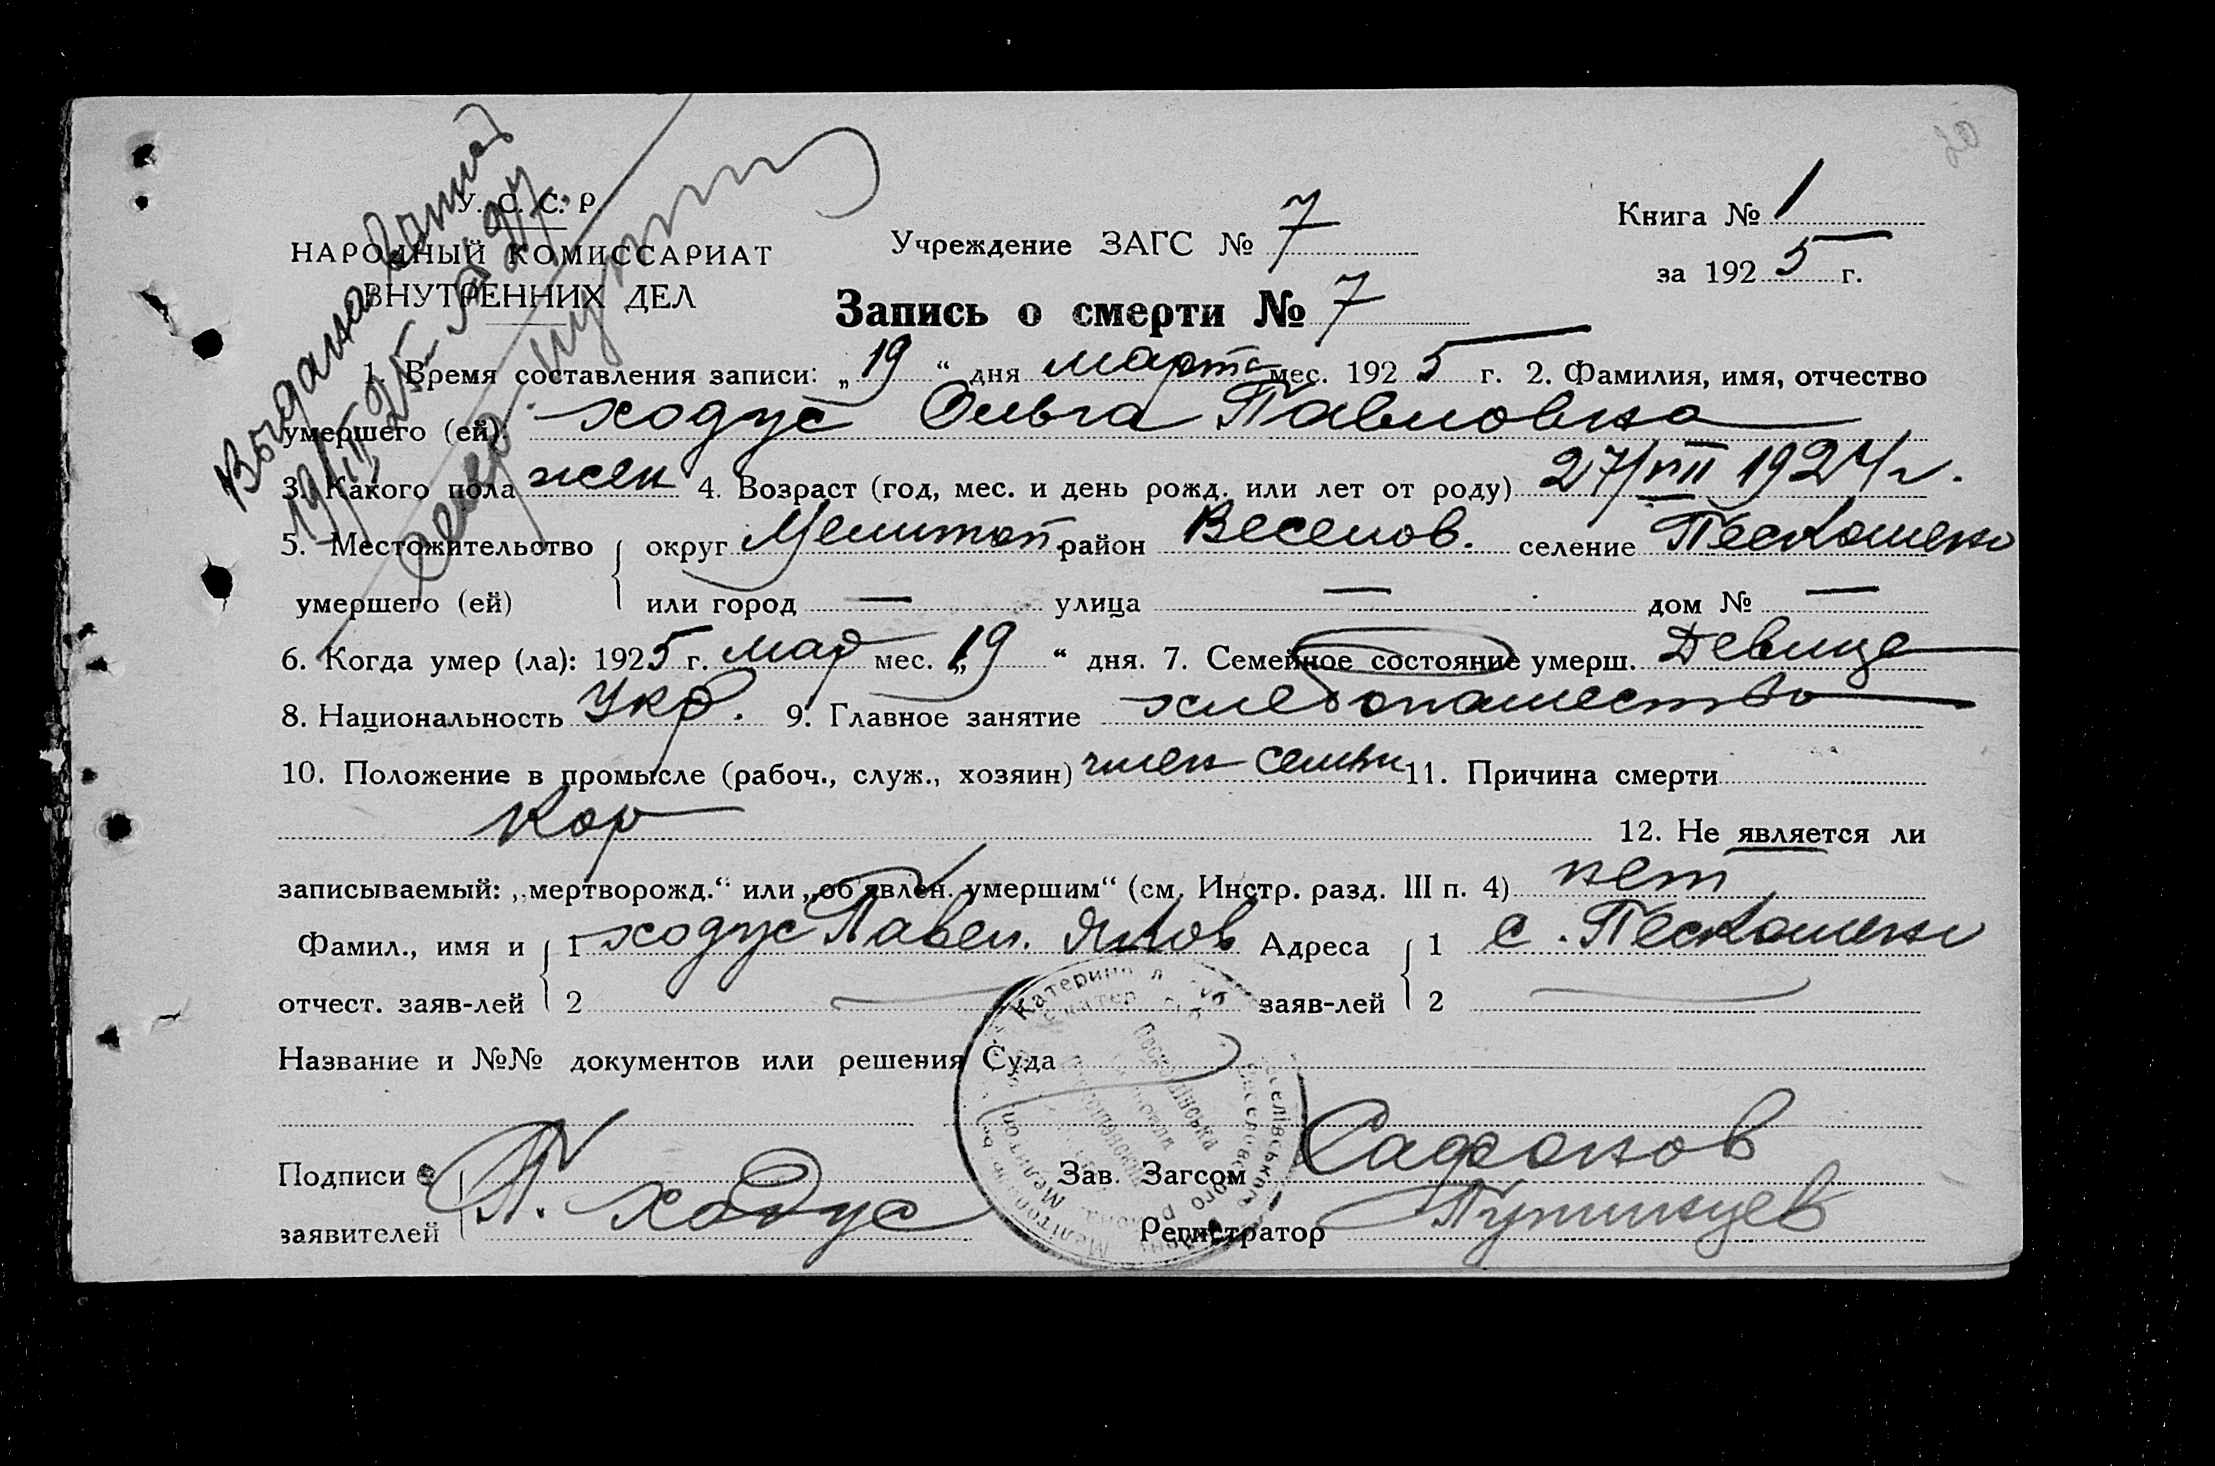 20
У. С. С. Р.
НАРОДНЫЙ КОМИССАРИАТ
ВНУТРЕННИХ ДЕЛ
Учреждение ЗАГС № 7
Книга № 1
за 1925 г.
Запись о смерти № 7
1. Время составления записи: „19“ дня марта мес. 1925 г. 2. Фамилия, имя, отчество
умершего (ей) Ходус Ольга Павловна
3. Какого пола жен 4. Возраст (год, мес. и день рожд. или лет от роду) 27/VIII 1924 г.
5. Местожительство округ Мелитоп. район Веселов. селение
умершего (ей) или город — улица — дом № —
6. Когда умер (ла): 1925 г. мар мес. „19“ дня. 7. Семейное состояние умерш. Девица
8. Национальность Укр. 9. Главное занятие хлебопашество
10. Положение в промысле (рабоч., служ., хозяин) член семьи 11. Причина смерти
Кор 12. Не является ли
записываемый: „мертворожд.“ или „об'явлен. умершим“ (см. Инстр. разд. III п. 4) нет
Фамил., имя и 1 Ходус Павел Яков Адреса 1 с.
отчест. заяв-лей 2 заяв-лей 2
Название и №№ документов или решения Суда
Подписи Зав. Загсом Сафонов
заявителей П. Ходус Регистратор